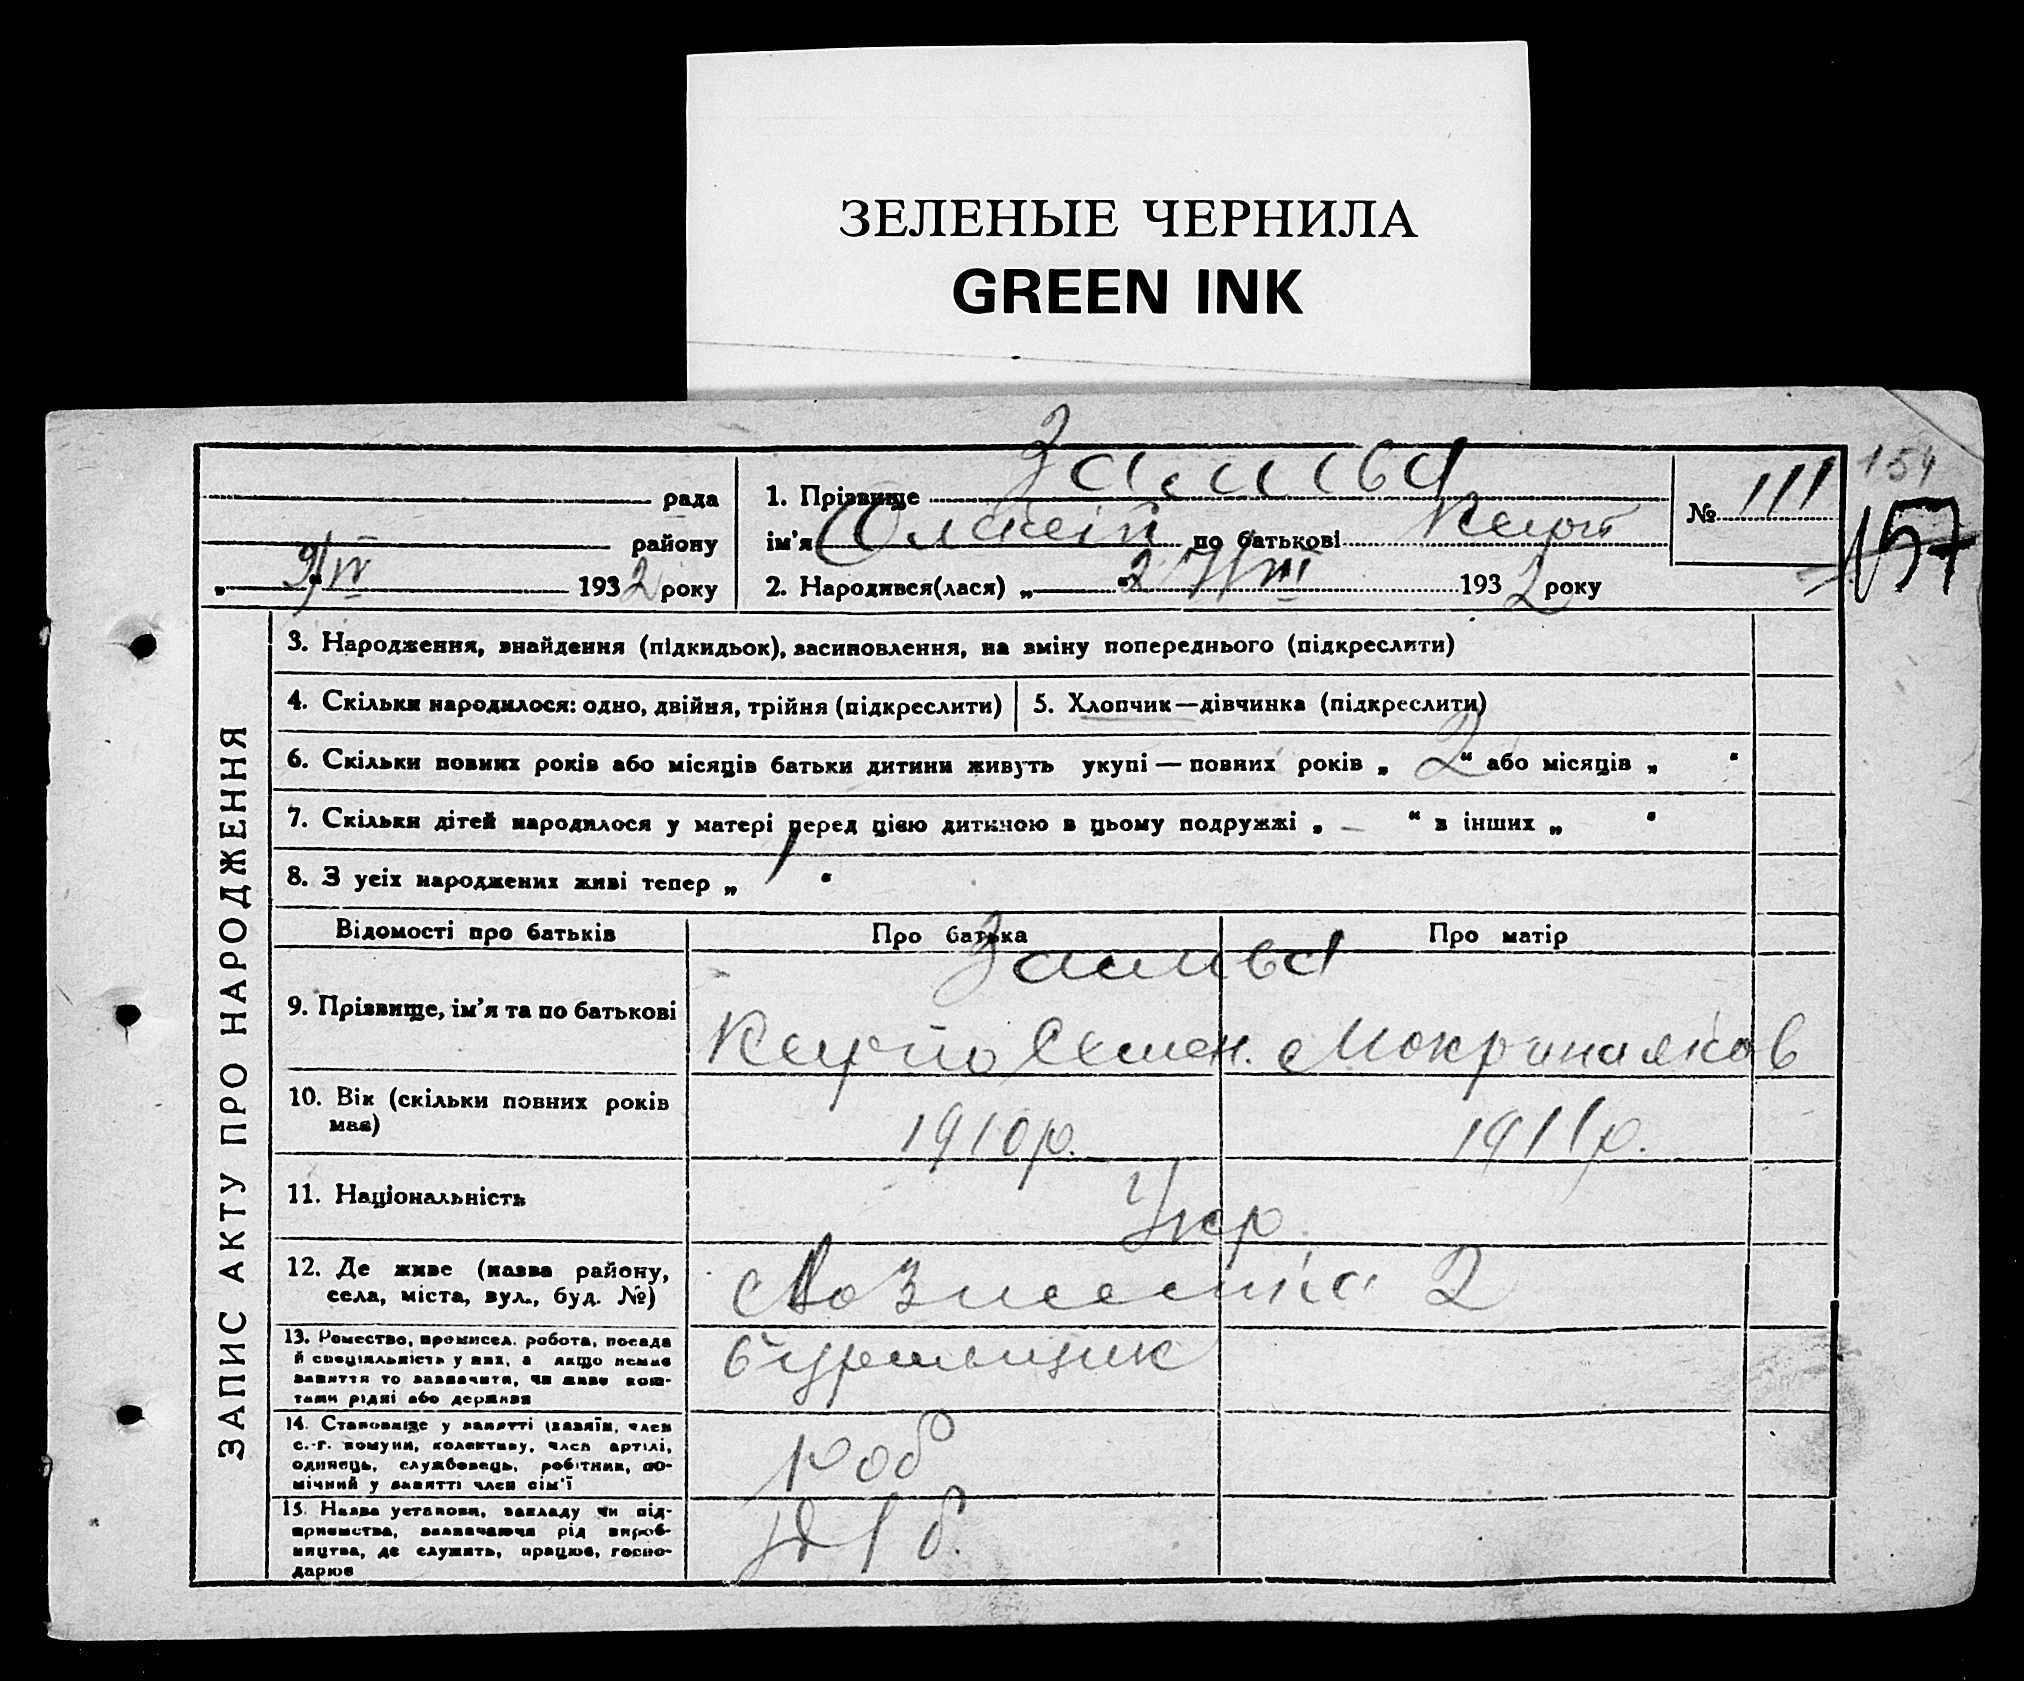 ЗЕЛЕНЫЕ ЧЕРНИЛА
GREEN INK
154
157
рада
району
„ 9/IV “ 1932 року
1. Прізвище
ім'я Олексій по батькові
2. Народився(лася) „ 27/III “ 1932 року
№ 111
ЗАПИС АКТУ ПРО НАРОДЖЕННЯ
3. Народження, знайдення (підкидьок), засиновлення, на зміну попереднього (підкреслити)
4. Скільки народилося: одно, двійня, трійня (підкреслити)
5. Хлопчик—дівчинка (підкреслити)
6. Скільки повних років або місяців батьки дитини живуть укупі — повних років „ 2 “ або місяців „ “
7. Скільки дітей народилося у матері перед цією дитиною в цьому подружжі „ — “ в інших „ “
8. З усіх народжених живі тепер „ 1 “
Відомості про батьків
Про батька
Про матір
9. Прізвище, ім'я та по батькові
Семен.
10. Вік (скільки повних років
має)
1910р.
1911р.
11. Національність
Укр
12. Де живе (назва району,
села, міста, вул., буд. №)
2
13. Ремество, промисел, робота, посада
й спеціяльність у них, а якщо немає
заняття то зазначити, чи живе кош-
тами рідні або держави
14. Становище у занятті (хазяїн, член
с.-г. комуни, колективу, член артілі,
одинець, службовець, робітник, по-
мічний у занятті член сім'ї
роб
15. Назва установи, закладу чи під-
приємства, зазначаючи рід вироб-
ництва, де служить, працює, госпо-
дарює